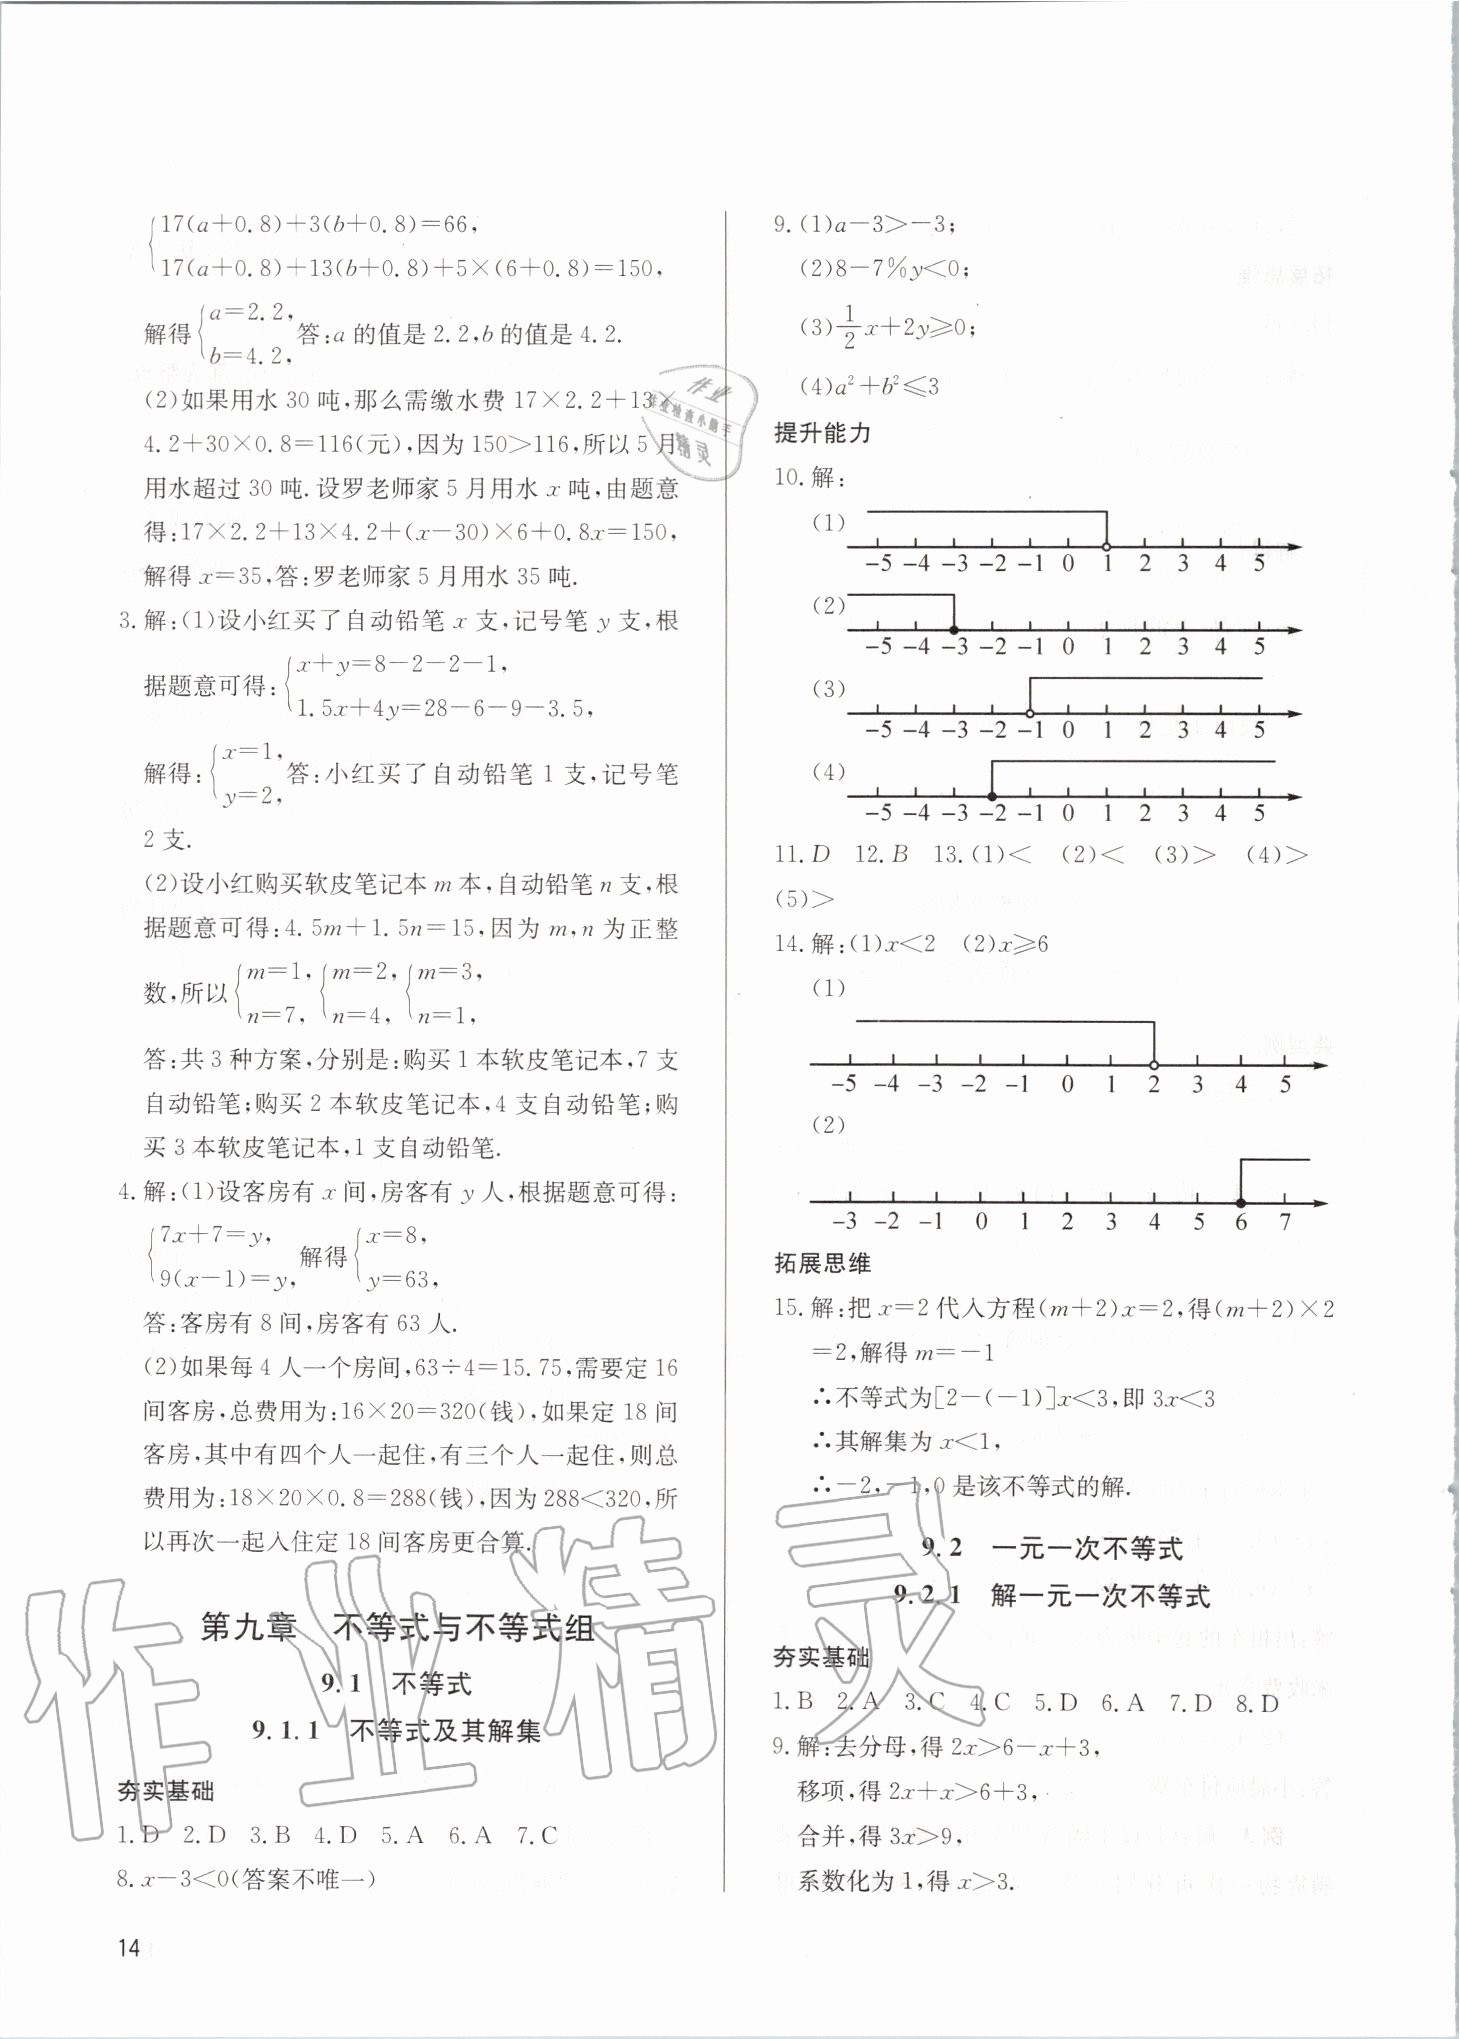 17(a+0.8)+3(b+0.8)=66,
17(a+0.8)+13(b+0.8)+5×(6+0.8)=150,
解得{a=2.2, b=4.2, 答:a的值是2.2,b的值是4.2.
(2)如果用水30吨,那么需缴水费17×2.2+13×
4.2+30×0.8=116(元),因为150>116,所以5月
用水超过30吨.设罗老师家5月用水x吨,由题意
得:17×2.2+13×4.2+(x-30)×6+0.8x=150,
解得x=35,答:罗老师家5月用水35吨.
3.解:(1)设小红买了自动铅笔x支,记号笔y支,根
据题意可得:{x+y=8-2-2-1, 1.5x+4y=28-6-9-3.5,
解得:{x=1, y=2, 答:小红买了自动铅笔1支,记号笔
2支.
(2)设小红购买软皮笔记本m本,自动铅笔n支,根
据题意可得:4.5m+1.5n=15,因为m,n为正整
数,所以{m=1, n=7, {m=2, n=4, {m=3, n=1,
答:共3种方案,分别是:购买1本软皮笔记本,7支
自动铅笔;购买2本软皮笔记本,4支自动铅笔;购
买3本软皮笔记本,1支自动铅笔.
4.解:(1)设客房有x间,房客有y人,根据题意可得:
{7x+7=y, 9(x-1)=y, 解得{x=8, y=63,
答:客房有8间,房客有63人.
(2)如果每4人一个房间,63÷4=15.75,需要定16
间客房,总费用为:16×20=320(钱),如果定18间
客房,其中有四个人一起住,有三个人一起住,则总
费用为:18×20×0.8=288(钱),因为288<320,所
以再次一起入住定18间客房更合算.
第九章 不等式与不等式组
9.1 不等式
9.1.1 不等式及其解集
夯实基础
1.D 2.D 3.B 4.D 5.A 6.A 7.C
8.x-3<0(答案不唯一)
14
9.(1)a-3>-3;
(2)8-7%y<0;
(3)1/2x+2y≥0;
(4)a²+b²≤3
提升能力
10.解:
(1)
-5 -4 -3 -2 -1 0 1 2 3 4 5
(2)
-5 -4 -3 -2 -1 0 1 2 3 4 5
(3)
-5 -4 -3 -2 -1 0 1 2 3 4 5
(4)
-5 -4 -3 -2 -1 0 1 2 3 4 5
11.D 12.B 13.(1)< (2)< (3)> (4)>
(5)>
14.解:(1)x<2 (2)x≥6
(1)
-5 -4 -3 -2 -1 0 1 2 3 4 5
(2)
-3 -2 -1 0 1 2 3 4 5 6 7
拓展思维
15.解:把x=2代入方程(m+2)x=2,得(m+2)×2
=2,解得m=-1
∴不等式为[2-(-1)]x<3,即3x<3
∴其解集为x<1,
∴-2,-1,0是该不等式的解.
9.2 一元一次不等式
9.2.1 解一元一次不等式
夯实基础
1.B 2.A 3.C 4.C 5.D 6.A 7.D 8.D
9.解:去分母,得2x>6-x+3,
移项,得2x+x>6+3,
合并,得3x>9,
系数化为1,得x>3.
作业精灵
作业
精灵